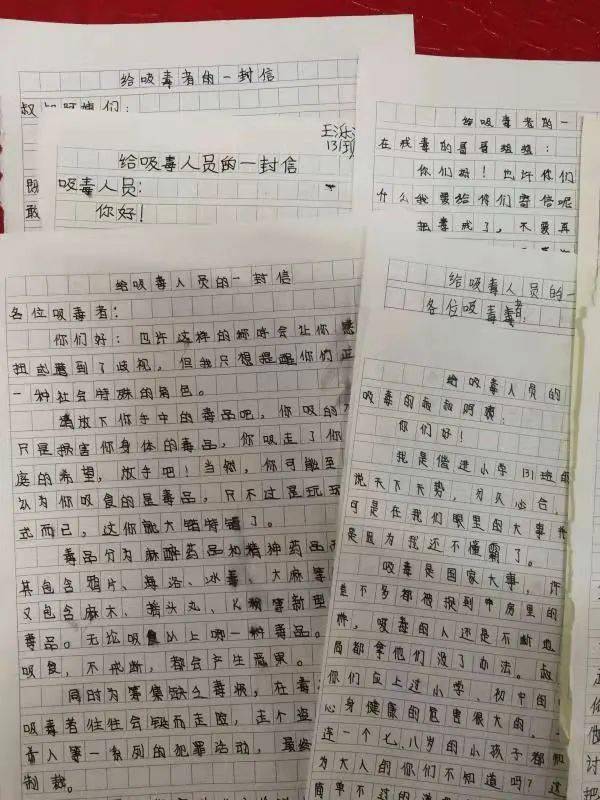 给吸毒者的一封信
叔叔阿姨们：
给吸毒人员的一封信
吸毒人员：
你好！
131班
给吸毒者的一
在戒毒的哥哥姐姐：
你们好！也许你们
什么我要给你们寄信呢
把毒戒了，不要再
给吸毒人员的一封信
各位吸毒者：
你们好：也许这样的称呼会让你感
到了歧视，但我只想提醒你们正
一种社会特殊的角色。
请放下你手中的毒品吧，你吸的
只是损害你身体的毒品，你吸走了你
庭的希望，放手吧！当然，你可能至
认为你吸食的是毒品，只不过是玩
式而已，这你就大错特错了。
毒品分为麻醉药品和精神药品
其包含鸦片、海洛、冰毒、大麻等
又包含麻木、摇头丸、K粉等新型
毒品。无论吸食以上哪一种毒品。
吸食，不戒断，都会产生恶果。
同时为筹集缺乏毒资，在毒
吸毒者往往会铤而走险，走个盗
杀人等一系列的犯罪活动，最终
制裁。
给吸毒人员的一
各位吸毒者：
给吸毒人员的
吸毒的叔叔阿姨
你们好！
我是偕进小学131班的
说天下大势，分久必合，
可是在我们眼里的大事
是因为我还不懂罢了。
吸毒是国家大事，许
差不多都被捉到牢房里的
炸，吸毒的人还是不断地
局都拿他们没了办法。叔
你们应上过小学、初中的
心身健康的危害很大的。
连一个七、八岁的小孩子都知
为大人的你们不知道吗？这
简单不过的道